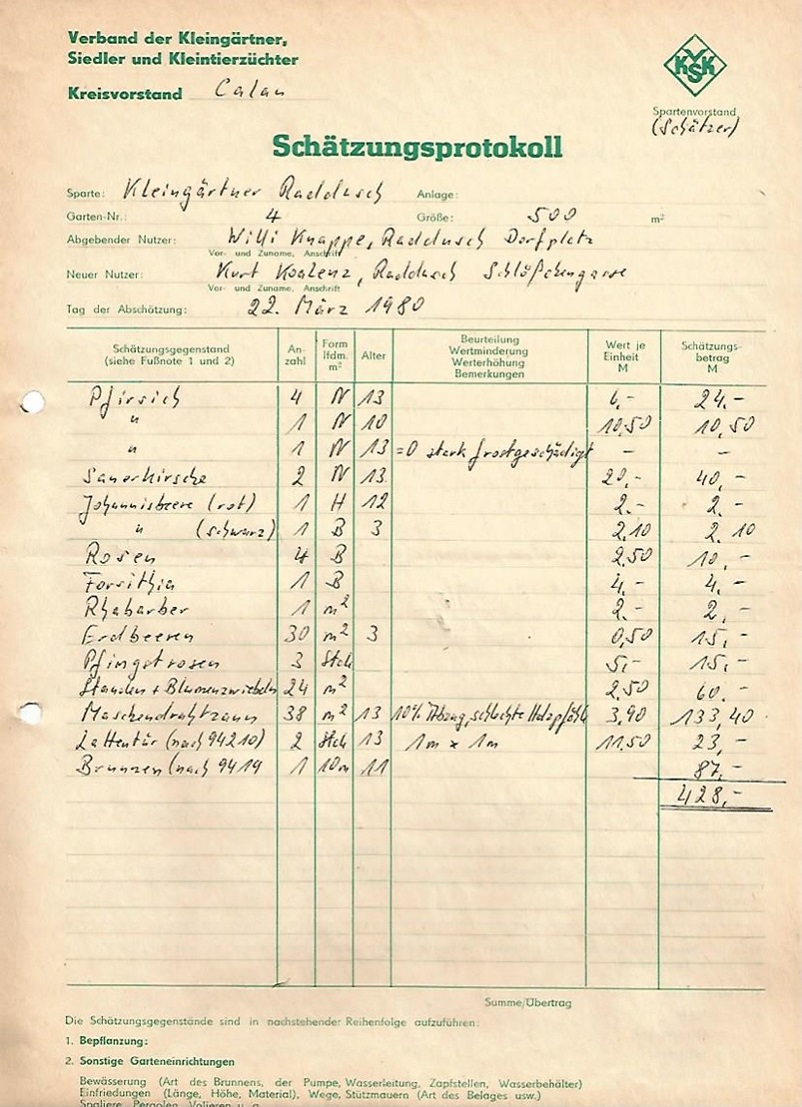 Verband der Kleingärtner,
Siedler und Kleintierzüchter
Kreisvorstand Calau
VKSK
Spartenvorstand
(Schätzer)
Schätzungsprotokoll
Sparte: Kleingärtner Raddusch Anlage:
Garten-Nr.: 4 Größe: 500 m²
Abgebender Nutzer: Willi Knappe, Raddusch Dorfplatz
Vor- und Zuname, Anschrift
Neuer Nutzer: Kurt Koalenz, Raddusch Schlößchengasse
Vor- und Zuname, Anschrift
Tag der Abschätzung: 22. März 1980
Schätzungsgegenstand (siehe Fußnote 1 und 2) Anzahl Form lfdm. m² Alter Beurteilung Wertminderung Werterhöhung Bemerkungen Wert je Einheit M Schätzungsbetrag M
Pfirsich 4 N 13 6,- 24,-
" 1 N 10 10,50 10,50
" 1 N 13 =0 stark frostgeschädigt - -
Sauerkirsche 2 N 13 20,- 40,-
Johannisbeere (rot) 1 H 12 2.- 2.-
" (schwarz) 1 B 3 2,10 2.10
Rosen 4 B 2,50 10,-
Forsithia 1 B 4,- 4,-
Rhabarber 1 m² 2.- 2,-
Erdbeeren 30 m² 3 0,50 15,-
Pfingstrosen 3 Stck 5,- 15,-
Stauden + Blumenzwiebeln 24 m² 2.50 60.-
Maschendrahtzaun 38 m² 13 10% Abzug, schlechte Holzpfähle 3,90 133,40
Lattentür (nach 94210) 2 Stck 13 1m x 1m 11.50 23,-
Brunnen (nach 9419 1 10m 11 87,-
428,-
Summe/Übertrag
Die Schätzungsgegenstände sind in nachstehender Reihenfolge aufzuführen:
1. Bepflanzung:
2. Sonstige Garteneinrichtungen
Bewässerung (Art des Brunnens, der Pumpe, Wasserleitung, Zapfstellen, Wasserbehälter)
Einfriedungen (Länge, Höhe, Material), Wege, Stützmauern (Art des Belages usw.)
Spaliere, Pergolen, Volieren u. a.